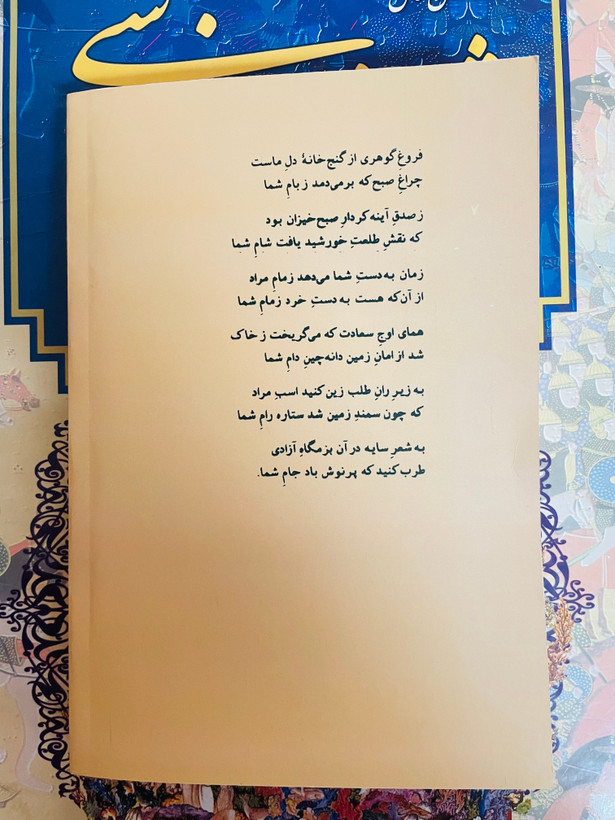 فروغِ گوهری از گنج‌خانهٔ دلِ ماست
چراغِ صبح که بر می‌دمد ز بامِ شما
ز صدقِ آینه کردارِ صبح‌خیزان بود
که نقشِ طلعتِ خورشید یافت شامِ شما
زمان به دستِ شما می‌دهد زمامِ مراد
از آن‌که هست به دستِ خرد زمامِ شما
همای اوجِ سعادت که می‌گریخت ز خاک
شد از امانِ زمین دانه‌چینِ دامِ شما
به زیرِ رانِ طلب زین کنید اسبِ مراد
که چون سمندِ زمین شد ستاره رامِ شما
به شعرِ سایه در آن بزمگاهِ آزادی
طرب کنید که پرنوش باد جامِ شما.